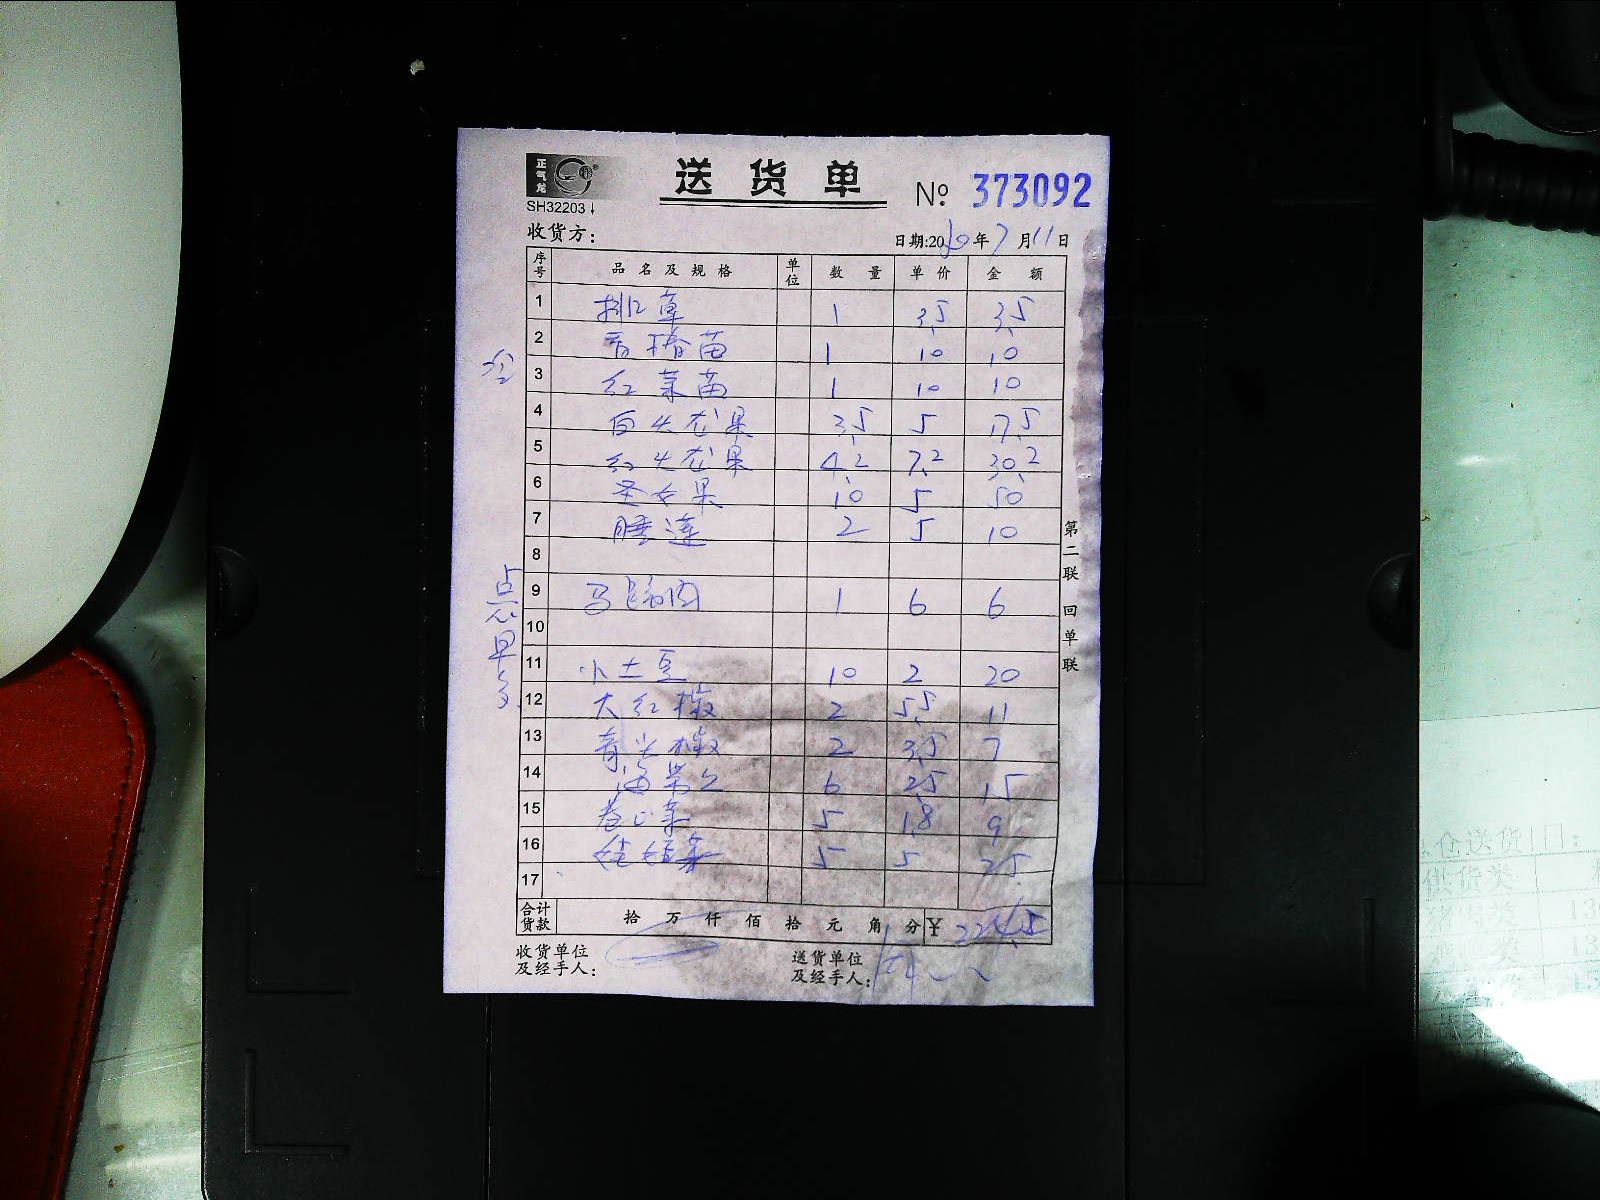 正气龙
SH32203
送货单
№ 373092
收货方:
日期:20 年7月11日
序号 品名及规格 单位 数量 单价 金额
1 草 1 3.5 3.5
2 香椿苗 1 10 10
3 红菜苗 1 10 10
4 白火龙果 3.5 5 17.5
5 红火龙果 4.2 7.2 30.2
6 圣女果 10 5 50
7 睡莲 2 5 10
8
9 马 1 6 6
10
11 小土豆 10 2 20
12 大红椒 2 5.5 11
13 青尖椒 2 3.5 7
14 海带 6 2.5 15
15 卷心菜 5 1.8 9
16 娃娃菜 5 5 25
17
合计货款 拾 万 仟 佰 拾 元 角 分 ¥ 224.5
收货单位及经手人:
送货单位及经手人:
第二联 回单联
点
仓送货 日:
供货类